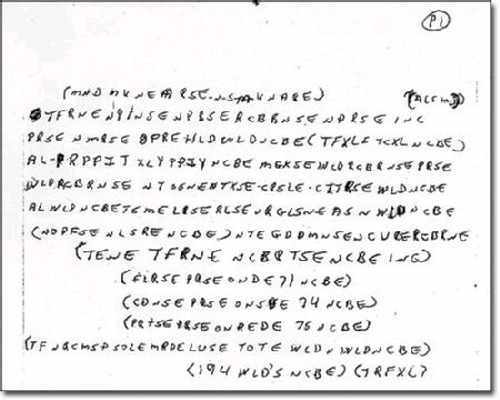 P1
(MND MKNEARSE-N-S-M-KNARE) (ACSM)
TFRNENPINSENPBSERCBRNSENPRSEINC
PRSENMRSEOPREHLDWLDNCBE(TFXLFTCXLNCBE)
AL-PRPPIT XLYPPIYNCBE MGKSEWLDRCBRNSEPRSE
WLDRCBRNSE NTSGNENTXSE-CRSLE-CITRSE WLDNCBE
ALWLDNCBETSMELRSERLSEURGLSNEASNWLDNCBE
(NOPFSENLSRENCBE)NTEGDDMNSENCURERCBRNE
(TENE TFRNE NCBRTSENCBE INC)
(FLRSE PRSE ONDE 71 NCBE)
(CDNSE PRSE ONSDE 74 NCBE)
(PRTSE PRSE ONREDE 75 NCBE)
(TFNQCMSPSOLEMRDELUSE TOTE WLDN WLDNCBE)
(194 WLD'S NCBE) (TRFXL)